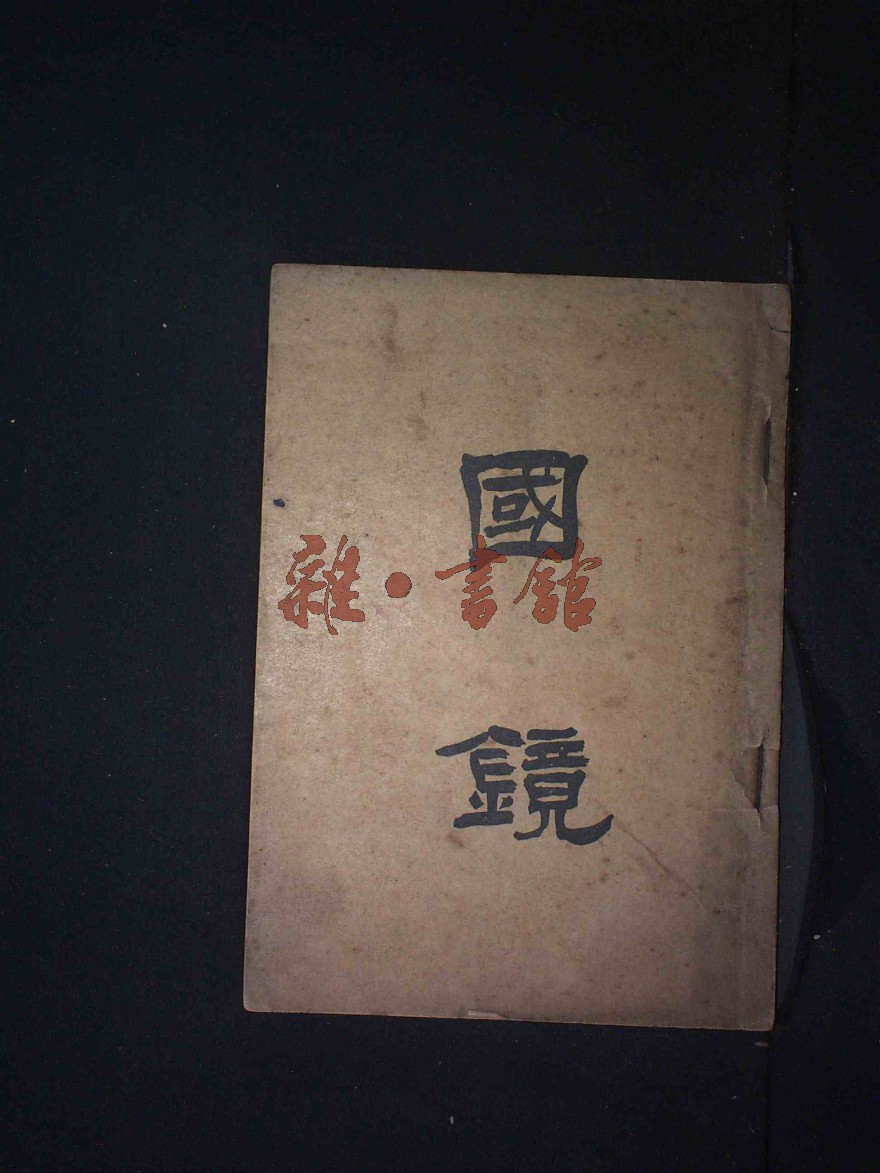 國鏡
雜·書館